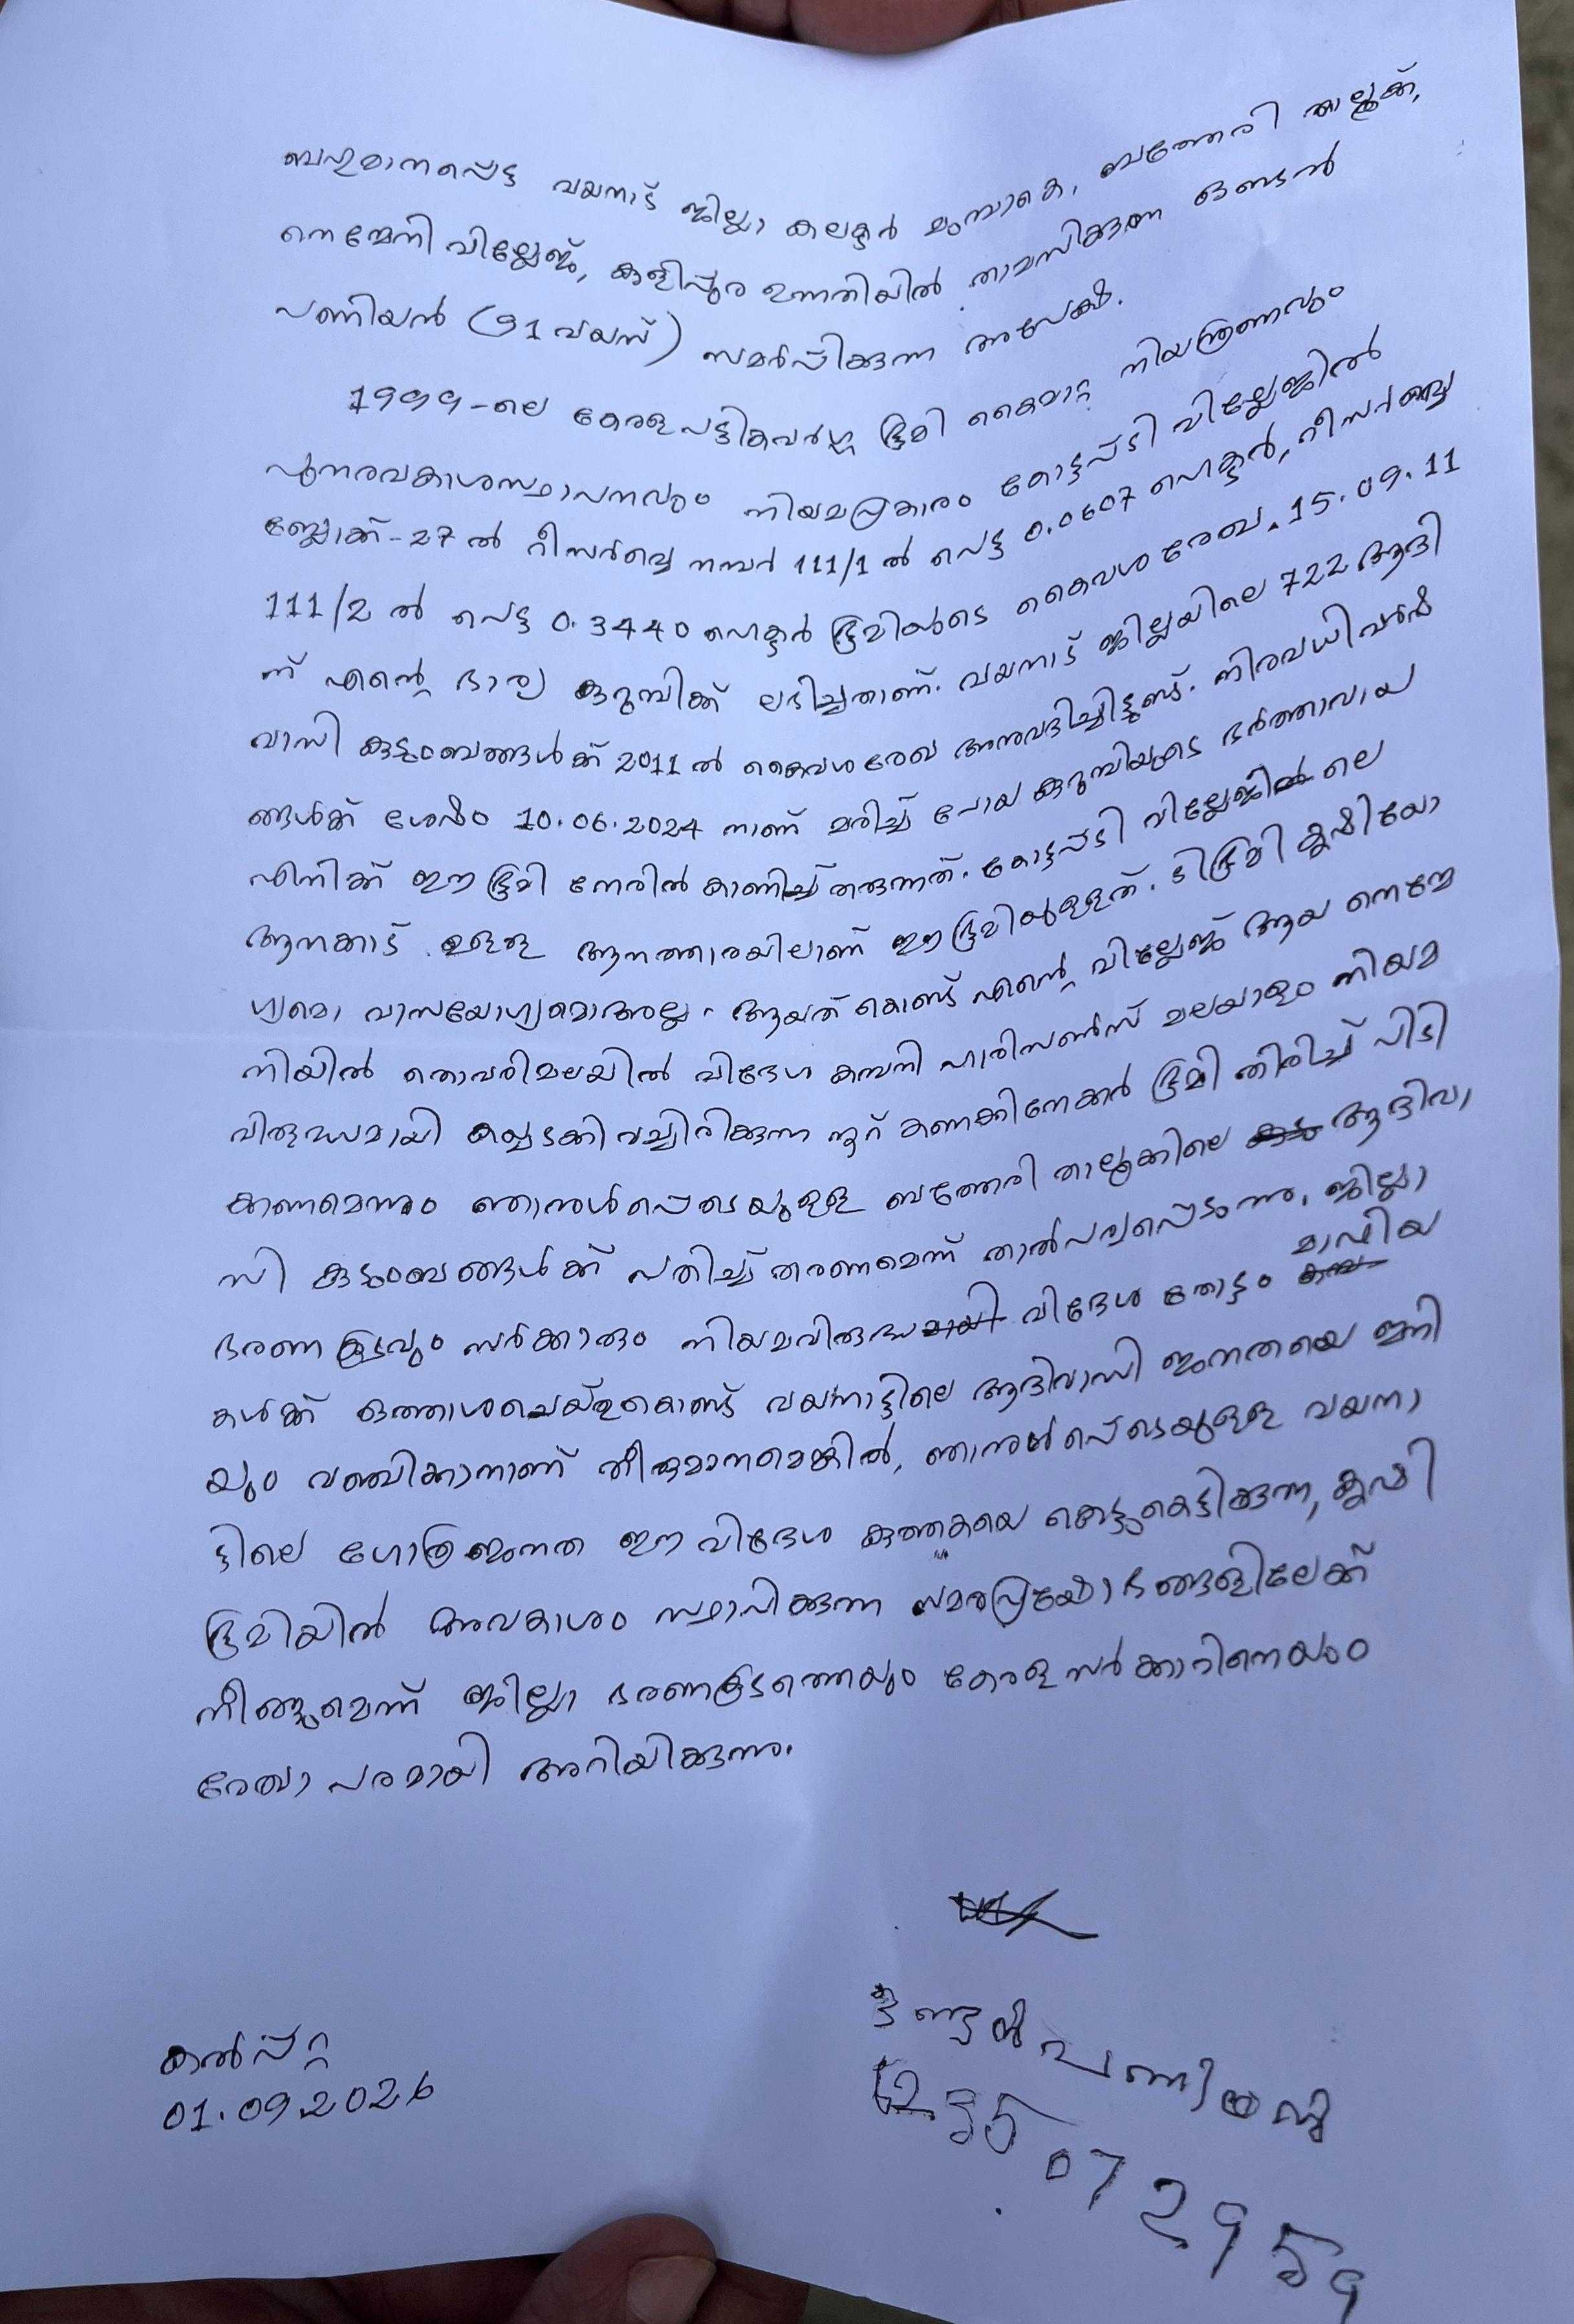 ബഹുമാനപ്പെട്ട വയനാട് ജില്ലാ കലക്ടർ മുമ്പാകെ, ബത്തേരി താലൂക്ക്,
നെന്മേനി വില്ലേജ്, കുളിപ്പുര ഉന്നതിയിൽ താമസിക്കുന്ന ഒണ്ടൻ
പണിയൻ (91 വയസ്) സമർപ്പിക്കുന്ന അപേക്ഷ.
1999-ലെ കേരള പട്ടികവർഗ്ഗ ഭൂമി കൈമാറ്റ നിയന്ത്രണവും
പുനരവകാശസ്ഥാപനവും നിയമപ്രകാരം കോട്ടപ്പടി വില്ലേജിൽ
ബ്ലോക്ക്-27 ൽ റീസർവ്വെ നമ്പർ 111/1 ൽ പെട്ട 0.0607 ഹെക്ടർ, റീസർവ്വെ
111/2 ൽ പെട്ട 0.3440 ഹെക്ടർ ഭൂമിയുടെ കൈവശ രേഖ. 15.09.11
ന് എന്റെ ഭാര്യ കുറുമ്പിക്ക് ലഭിച്ചതാണ്. വയനാട് ജില്ലയിലെ 722 ആദി
വാസി കുടുംബങ്ങൾക്ക് 2011 ൽ കൈവശ രേഖ അനുവദിച്ചിട്ടുണ്ട്. നിരവധി വർഷ
ങ്ങൾക്ക് ശേഷം 10.06.2024 നാണ് മരിച്ച് പോയ കുറുമ്പിയുടെ ഭർത്താവായ
എനിക്ക് ഈ ഭൂമി നേരിൽ കാണിച്ച് തരുന്നത്. കോട്ടപ്പടി വില്ലേജിലെ
ആനക്കാട് ഉള്ള ആനത്താരയിലാണ് ഈ ഭൂമിയുള്ളത്. ടി ഭൂമി കൃഷിയോ
ഗ്യമൊ വാസയോഗ്യമൊ അല്ല. ആയത് കൊണ്ട് എന്റെ വില്ലേജ് ആയ നെന്മേ
നിയിൽ തൊവരിമലയിൽ വിദേശ കമ്പനി ഹാരിസൺസ് മലയാളം നിയമ
വിരുദ്ധമായി കയ്യടക്കി വച്ചിരിക്കുന്ന നൂറ് കണക്കിനേക്കർ ഭൂമി തിരിച്ച് പിടി
ക്കണമെന്നും ഞാനുൾപ്പെടെയുള്ള ബത്തേരി താലൂക്കിലെ ആദിവാ
സി കുടുംബങ്ങൾക്ക് പതിച്ച് തരണമെന്ന് താൽപര്യപ്പെടുന്നു. ജില്ലാ
ഭരണ കൂടവും സർക്കാരും നിയമവിരുദ്ധ വിദേശ തോട്ടം മാഫിയ
കൾക്ക് ഒത്താശ ചെയ്തുകൊണ്ട് വയനാട്ടിലെ ആദിവാസി ജനതയെ ഇനി
യും വഞ്ചിക്കാനാണ് തീരുമാനമെങ്കിൽ, ഞാനുൾപ്പെടെയുള്ള വയനാ
ട്ടിലെ ഗോത്രജനത ഈ വിദേശ കുത്തകയെ കെട്ടുകെട്ടിക്കുന്ന, കൃഷി
ഭൂമിയിൽ അവകാശം സ്ഥാപിക്കുന്ന സമരപ്രക്ഷോഭങ്ങളിലേക്ക്
നീങ്ങുമെന്ന് ജില്ലാ ഭരണകൂടത്തെയും കേരള സർക്കാറിനെയും
രേഖാ പരമായി അറിയിക്കുന്നു.
കൽപ്പറ്റ
01.09.2026
ഒണ്ടൻ പണിയൻ